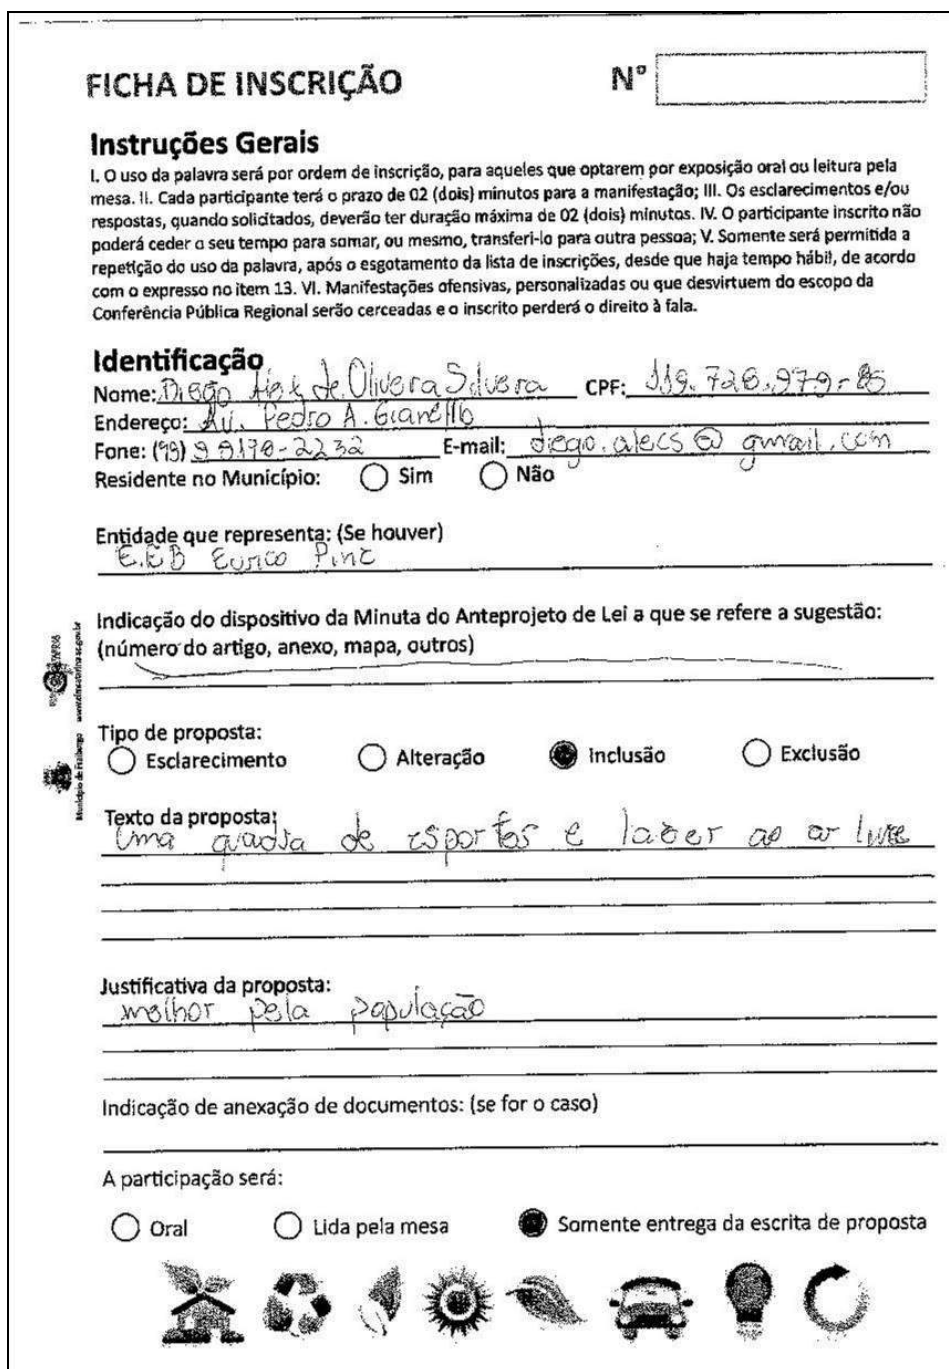 FICHA DE INSCRIÇÃO
Nº
Instruções Gerais
I. O uso da palavra será por ordem de inscrição, para aqueles que optarem por exposição oral ou leitura pela
mesa. II. Cada participante terá o prazo de 02 (dois) minutos para a manifestação; III. Os esclarecimentos e/ou
respostas, quando solicitados, deverão ter duração máxima de 02 (dois) minutos. IV. O participante inscrito não
poderá ceder o seu tempo para somar, ou mesmo, transferi-lo para outra pessoa; V. Somente será permitida a
repetição do uso da palavra, após o esgotamento da lista de inscrições, desde que haja tempo hábil, de acordo
com o expresso no item 13. VI. Manifestações ofensivas, personalizadas ou que desvirtuem do escopo da
Conferência Pública Regional serão cerceadas e o inscrito perderá o direito à fala.
Identificação
Nome: Diego de Oliveira Silveira CPF: 119.726.979-85
Endereço: Av. Pedro A. Gianello
Fone: (99) 99170-2232 E-mail: diego.alecs@gmail.com
Residente no Município: Sim Não
Entidade que representa: (Se houver)
E.E.B Eurico Pinz
Indicação do dispositivo da Minuta do Anteprojeto de Lei a que se refere a sugestão:
(número do artigo, anexo, mapa, outros)
Município de Fraiburgo
Tipo de proposta:
Esclarecimento Alteração Inclusão Exclusão
Texto da proposta:
Uma quadra de esportes e lazer ao ar livre
Justificativa da proposta:
melhor pela população
Indicação de anexação de documentos: (se for o caso)
A participação será:
Oral Lida pela mesa Somente entrega da escrita de proposta